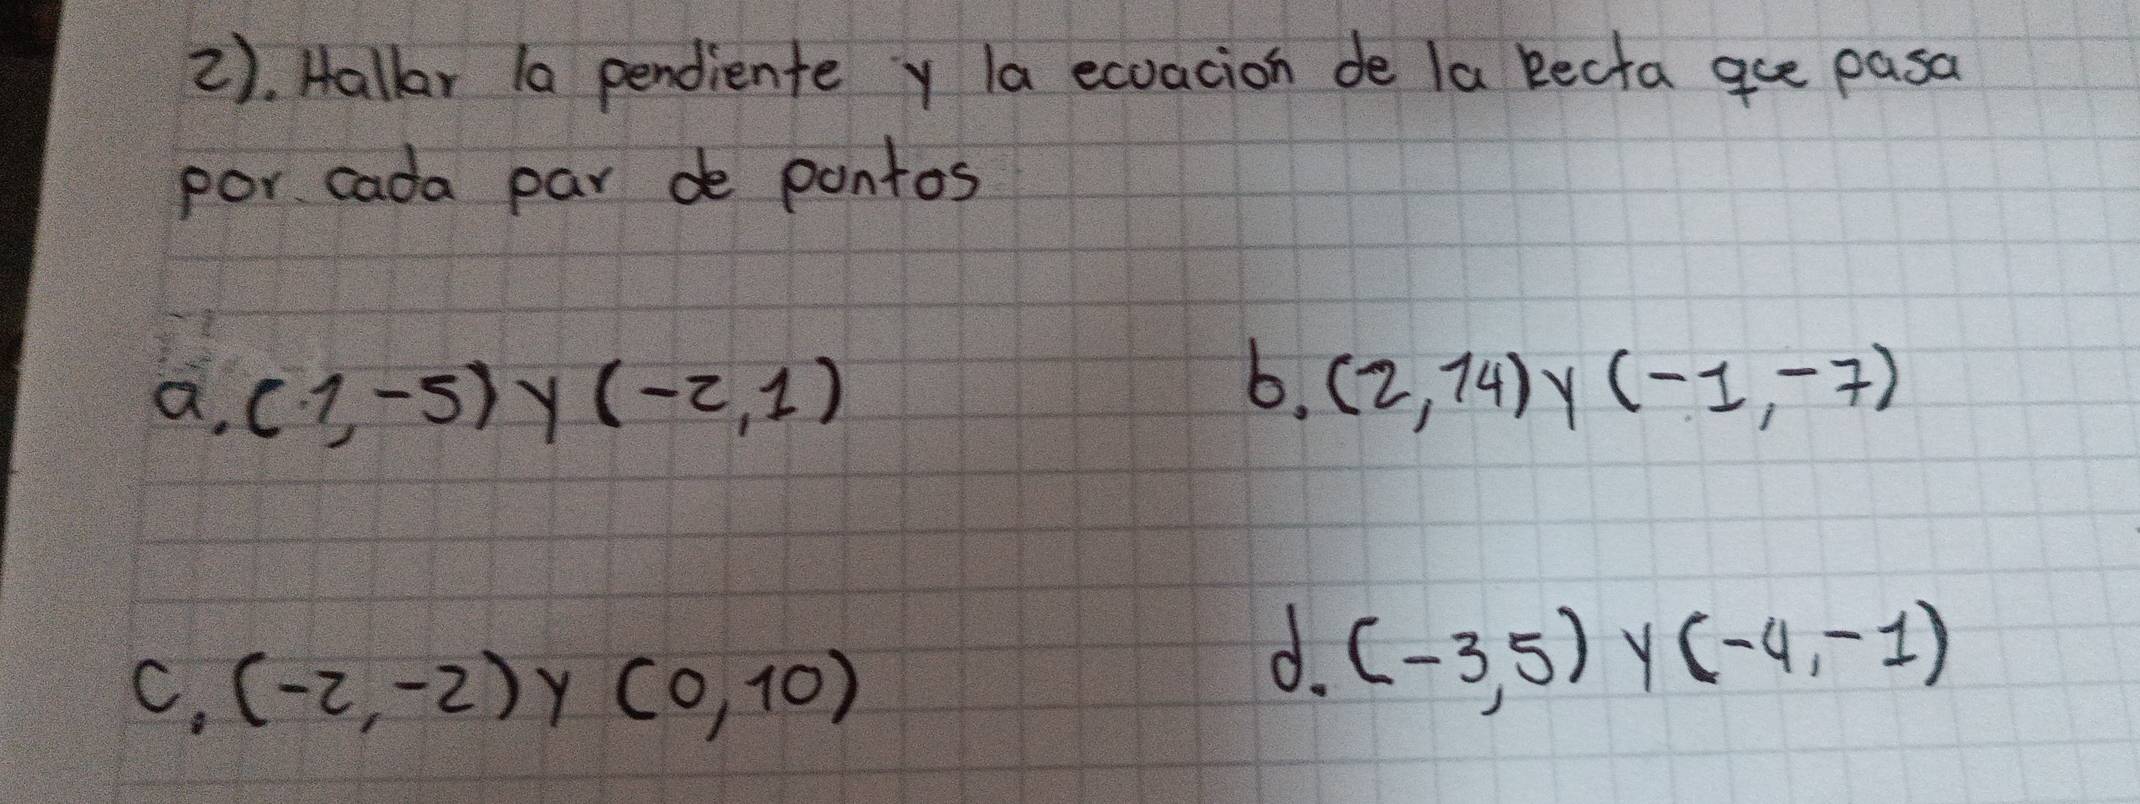 2). Hallar la pendiente y la ecuación de la Recta que pasa
por cada par de puntos
a. (1,-5) y (-2,1)
b. (2,14) y (-1,-7)
c. (-2,-2) y (0,10)
d. (-3,5) y (-4,-1)